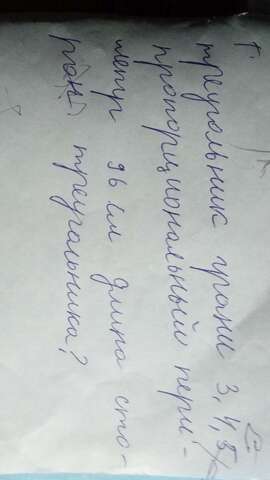 треугольник грани 3,4,5
пропорциональный пери-
метр 96 см длина сто-
рон треугольника?